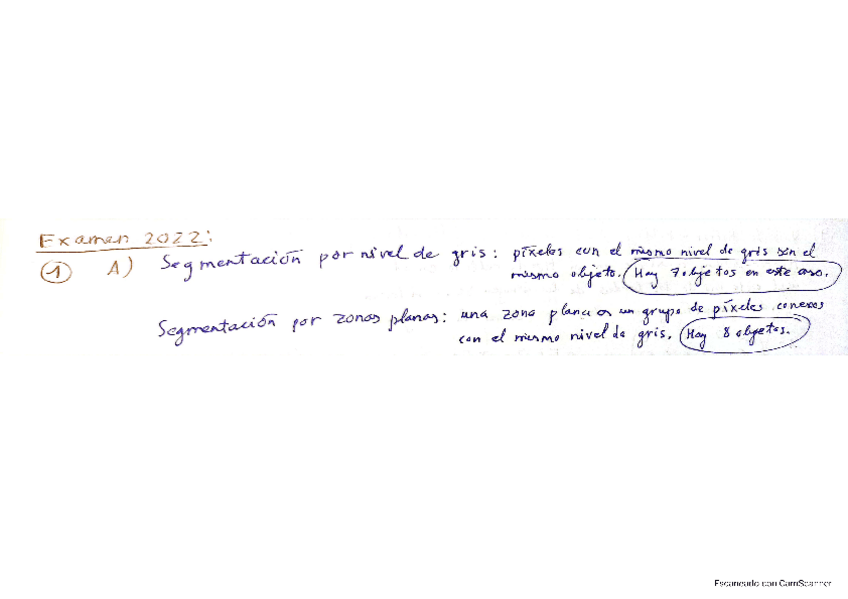 Examen 2022:
1 A) Segmentación por nivel de gris: píxeles con el mismo nivel de gris son el
mismo objeto. Hay 7 objetos en este caso.
Segmentación por zonas planas: una zona plana es un grupo de píxeles conexos
con el mismo nivel de gris. Hay 8 objetos.
Escaneado con CamScanner